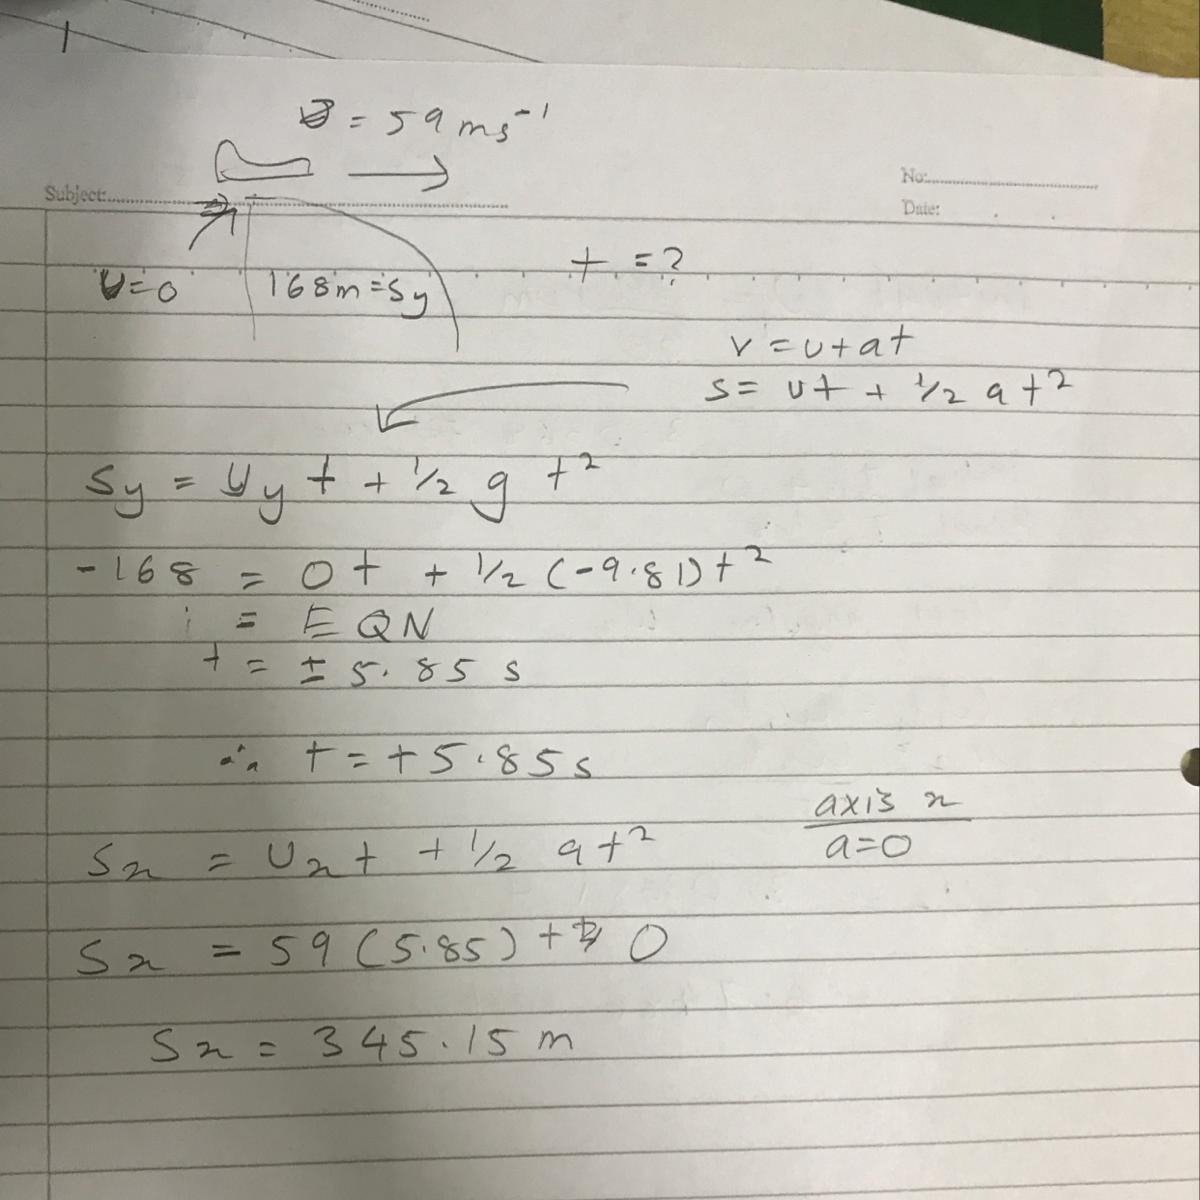 = 59 ms⁻¹
No:
Subject:
Date:
t = ?
U=0
168m=Sy
v = u+at
s= ut + 1/2 at²
Sy = Uy t + 1/2 g t²
-168 = 0t + 1/2 (-9.81)t²
= EQN
t = ± 5.85 s
∴ t = +5.85s
axis x
a=0
Sx = Uxt + 1/2 at²
Sx = 59 (5.85) + 0
Sx = 345.15 m